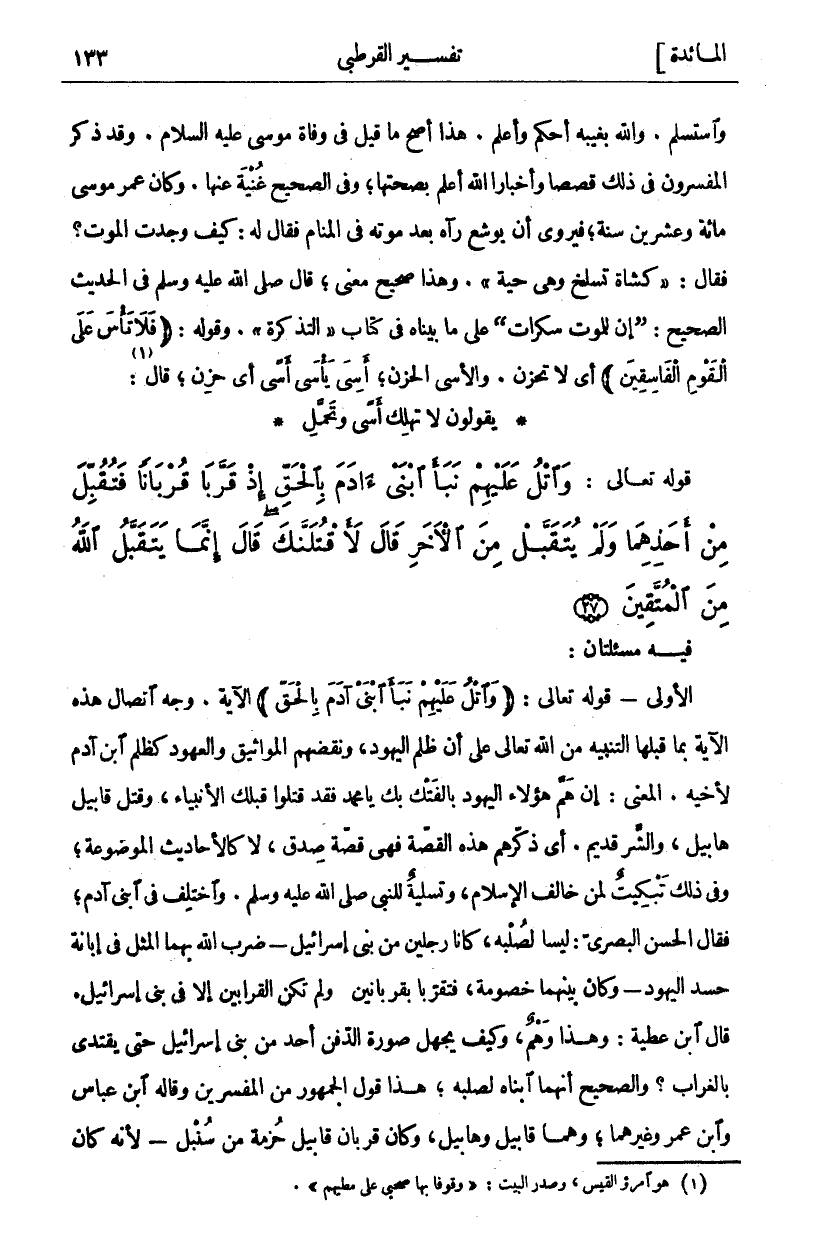 المائدة ]
تفسير القرطبى
١٣٣
وٱستسلم . والله بغيبه أحكم وأعلم . هذا أصح ما قيل فى وفاة موسى عليه السلام . وقد ذكر
المفسرون فى ذلك قصصا وأخبارا الله أعلم بصحتها؛ وفى الصحيح غُنْيَة عنها . وكان عمر موسى
مائة وعشرين سنة؛ فيروى أن يوشع رآه بعد موته فى المنام فقال له : كيف وجدت الموت؟
فقال : « كشاة تسلخ وهى حية » . وهذا صحيح معنى ؛ قال صلى الله عليه وسلم فى الحديث
الصحيح : ”إن للموت سكرات“ على ما بيناه فى كتاب « التذكرة » . وقوله : ﴿ فَلَا تَأْسَ عَلَى
ٱلْقَوْمِ ٱلْفَاسِقِينَ ﴾ أى لا تحزن . والأسى الحزن؛ أَسِىَ يَأْسَى أَسًى أى حزن ؛ قال (١) :
* يقولون لا تهلِك أَسًى وتَجَمَّلِ *
قوله تعـالى : وَٱتْلُ عَلَيْهِمْ نَبَأَ ٱبْنَىْ ءَادَمَ بِٱلْحَقِّ إِذْ قَرَّبَا قُرْبَانًا فَتُقُبِّلَ
مِنْ أَحَدِهِمَا وَلَمْ يُتَقَبَّلْ مِنَ ٱلْآخَرِ قَالَ لَأَقْتُلَنَّكَ ۖ قَالَ إِنَّمَا يَتَقَبَّلُ ٱللَّهُ
مِنَ ٱلْمُتَّقِينَ ﴿٢٧﴾
فيـه مسئلتان :
الأولى — قوله تعالى : ﴿ وَٱتْلُ عَلَيْهِمْ نَبَأَ ٱبْنَىْ آدَمَ بِٱلْحَقِّ ﴾ الآية . وجه ٱتصال هذه
الآية بما قبلها التنبيه من الله تعالى على أن ظلم اليهود، ونقضهم المواثيق والعهود كظلم ٱبن آدم
لأخيه . المعنى : إن هَمَّ هؤلاء اليهود بالفَتْك بك يا محمد فقد قتلوا قبلك الأنبياء ، وقتل قابيل
هابيل ، والشَّر قديم . أى ذكّرهم هذه القصّة فهى قصّة صِدق ، لا كالأحاديث الموضوعة ؛
وفى ذلك تَبْكِيتٌ لمن خالف الإسلام، وتسليةٌ للنبى صلى الله عليه وسلم . وٱختلف فى ٱبنى آدم؛
فقال الحسن البصرىّ : ليسا لصُلْبه، كانا رجلين من بنى إسرائيل — ضرب الله بهما المثل فى إبانة
حسد اليهود — وكان بينهما خصومة، فتقرّبا بقربانين ولم تكن القرابين إلا فى بنى إسرائيل.
قال ٱبن عطية : وهـذا وَهْمٌ، وكيف يجهل صورة الدّفن أحد من بنى إسرائيل حتى يقتدى
بالغراب ؟ والصحيح أنهما ٱبناه لصلبه ؛ هـذا قول الجمهور من المفسرين وقاله ٱبن عباس
وٱبن عمر وغيرهما ؛ وهمـا قابيل وهابيل، وكان قربان قابيل حُزمة من سُنْبل — لأنه كان
(١) هو ٱمرؤ القيس ، وصدر البيت : « وقوفا بها صحبى على مطيهم » .